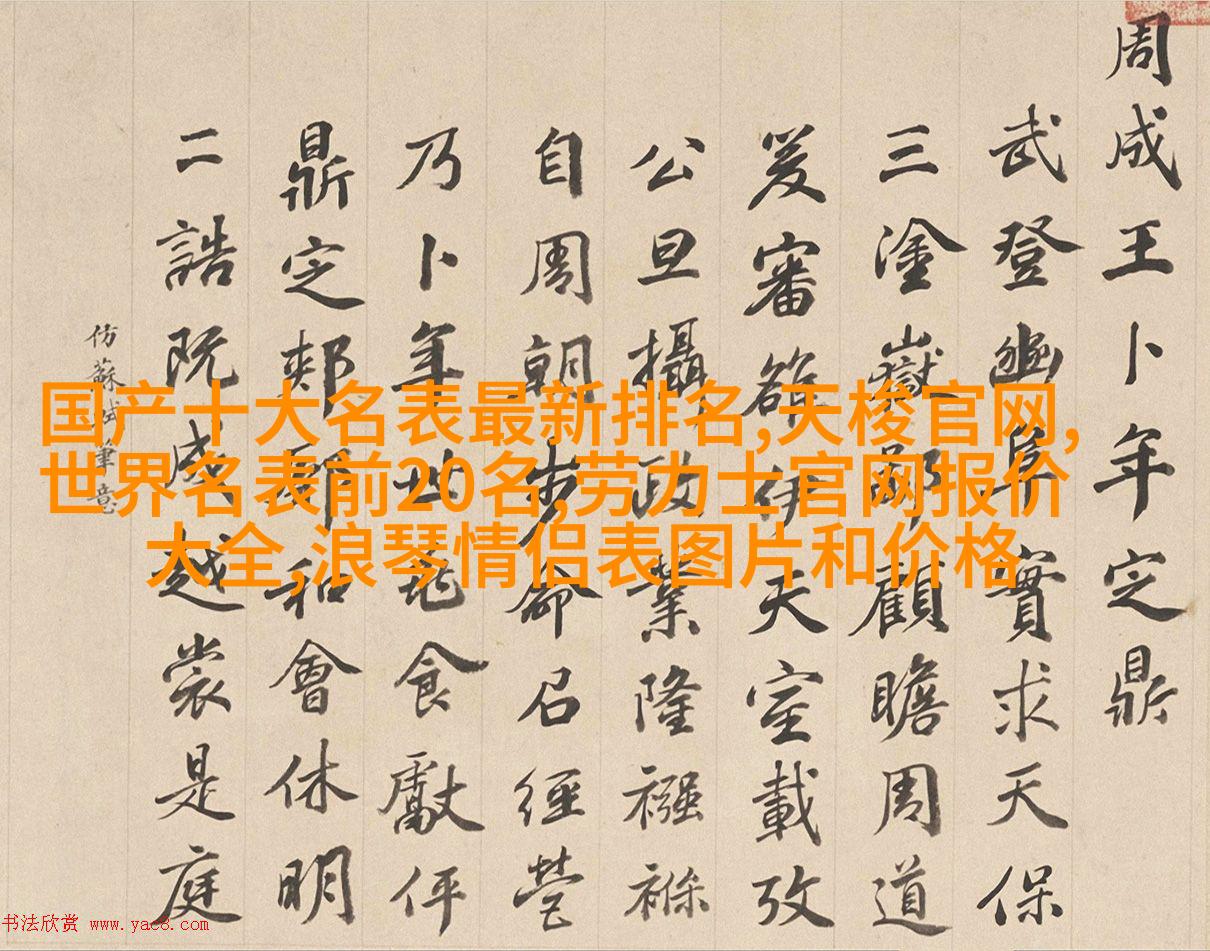 周成王卜年定鼎
武登豳阜實求天保
三塗嶽鄙顧瞻周道
爰審雒伊天室載攷
公旦攝政業隆襁褓
自周朝步命召經營
乃卜年世龜食獻伻
鼎定郟鄏和會休明
二誥既成越裳是庭
仿蘇軾筆意
国产十大名表最新排名,天梭官网,
世界名表前20名,劳力士官网报价
大全,浪琴情侣表图片和价格
书法欣赏 www.yac8.com